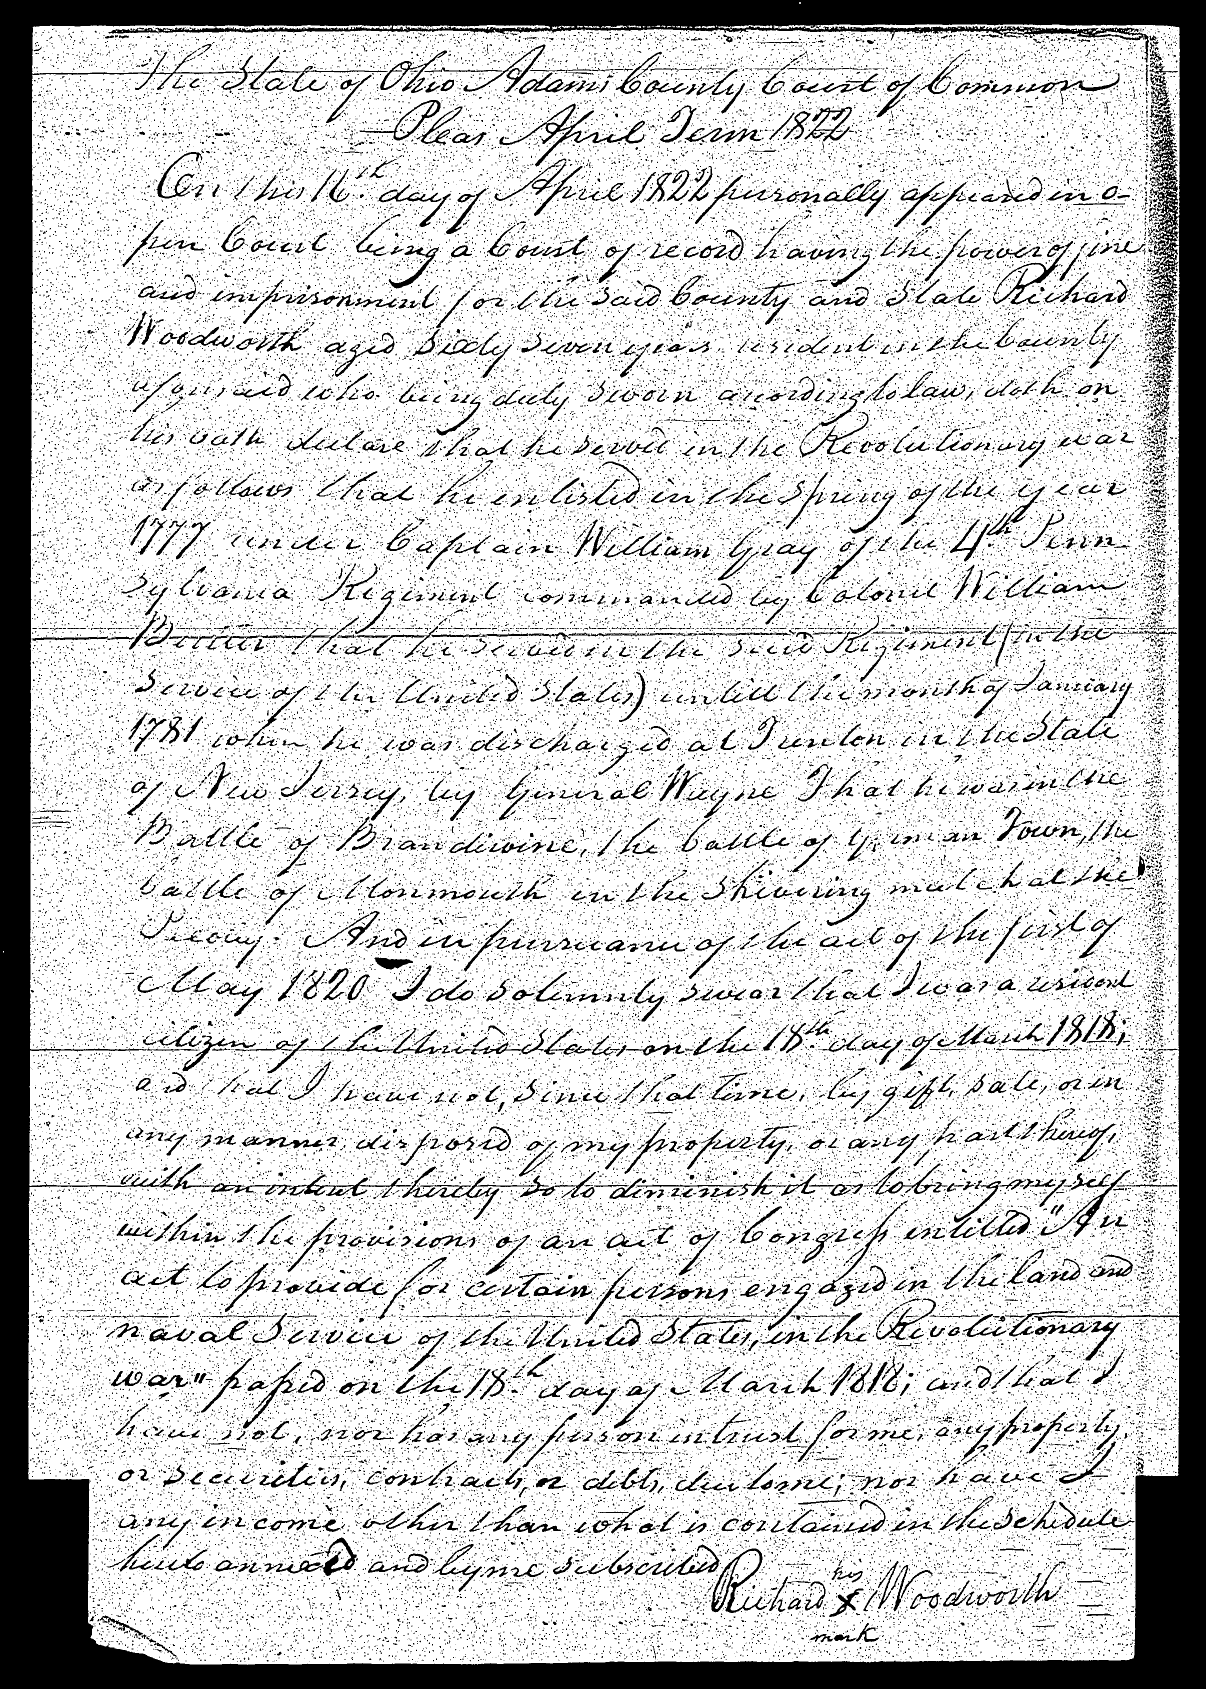 The State of Ohio Adams County Court of Common
Pleas April Term 1822
On this 16th day of April 1822 personally appeared in o-
pen Court being a Court of record having the power of fine
and imprisonment for the said County and State Richard
Woodworth aged sixty seven years resident in the County
aforesaid who being duly sworn acording to law, doth on
his oath declare that he served in the Revolutionary war
as follows that he enlisted in the spring of the year
1777 under Captain William Gray of the 4th Penn
sylvania Regiment commanded by Colonel William
Butler that he served in the said Regiment (in the
Service of the United States) untill the month of January
1781 when he was discharged at Trenton in the State
of New Jersey, by General Wayne That he was in the
Battle of Brandiwine, the battle of German Town, the
battle of Monmouth in the Shivering match at the
And in pursuance of the act of the first of
May 1820 I do solemnly swear that I was a resident
citizen of the United States on the 18th day of March 1818;
and that I have not, since that time, by gift, sale, or in
any manner disposed of my property, or any part thereof,
with an intent thereby so to diminish it as to bring myself
within the provisions of an act of Congress entitled "An
act to provide for certain persons engaged in the land and
naval Service of the United States, in the Revolutionary
war" passed on the 18th day of March 1818; and that I
have not, nor has any person in trust for me, any property,
or securities, contracts, or debts, due to me; nor have I
any income other than what is contained in the schedule
hereto annexed and by me subscribed
Richard his X Woodworth
mark